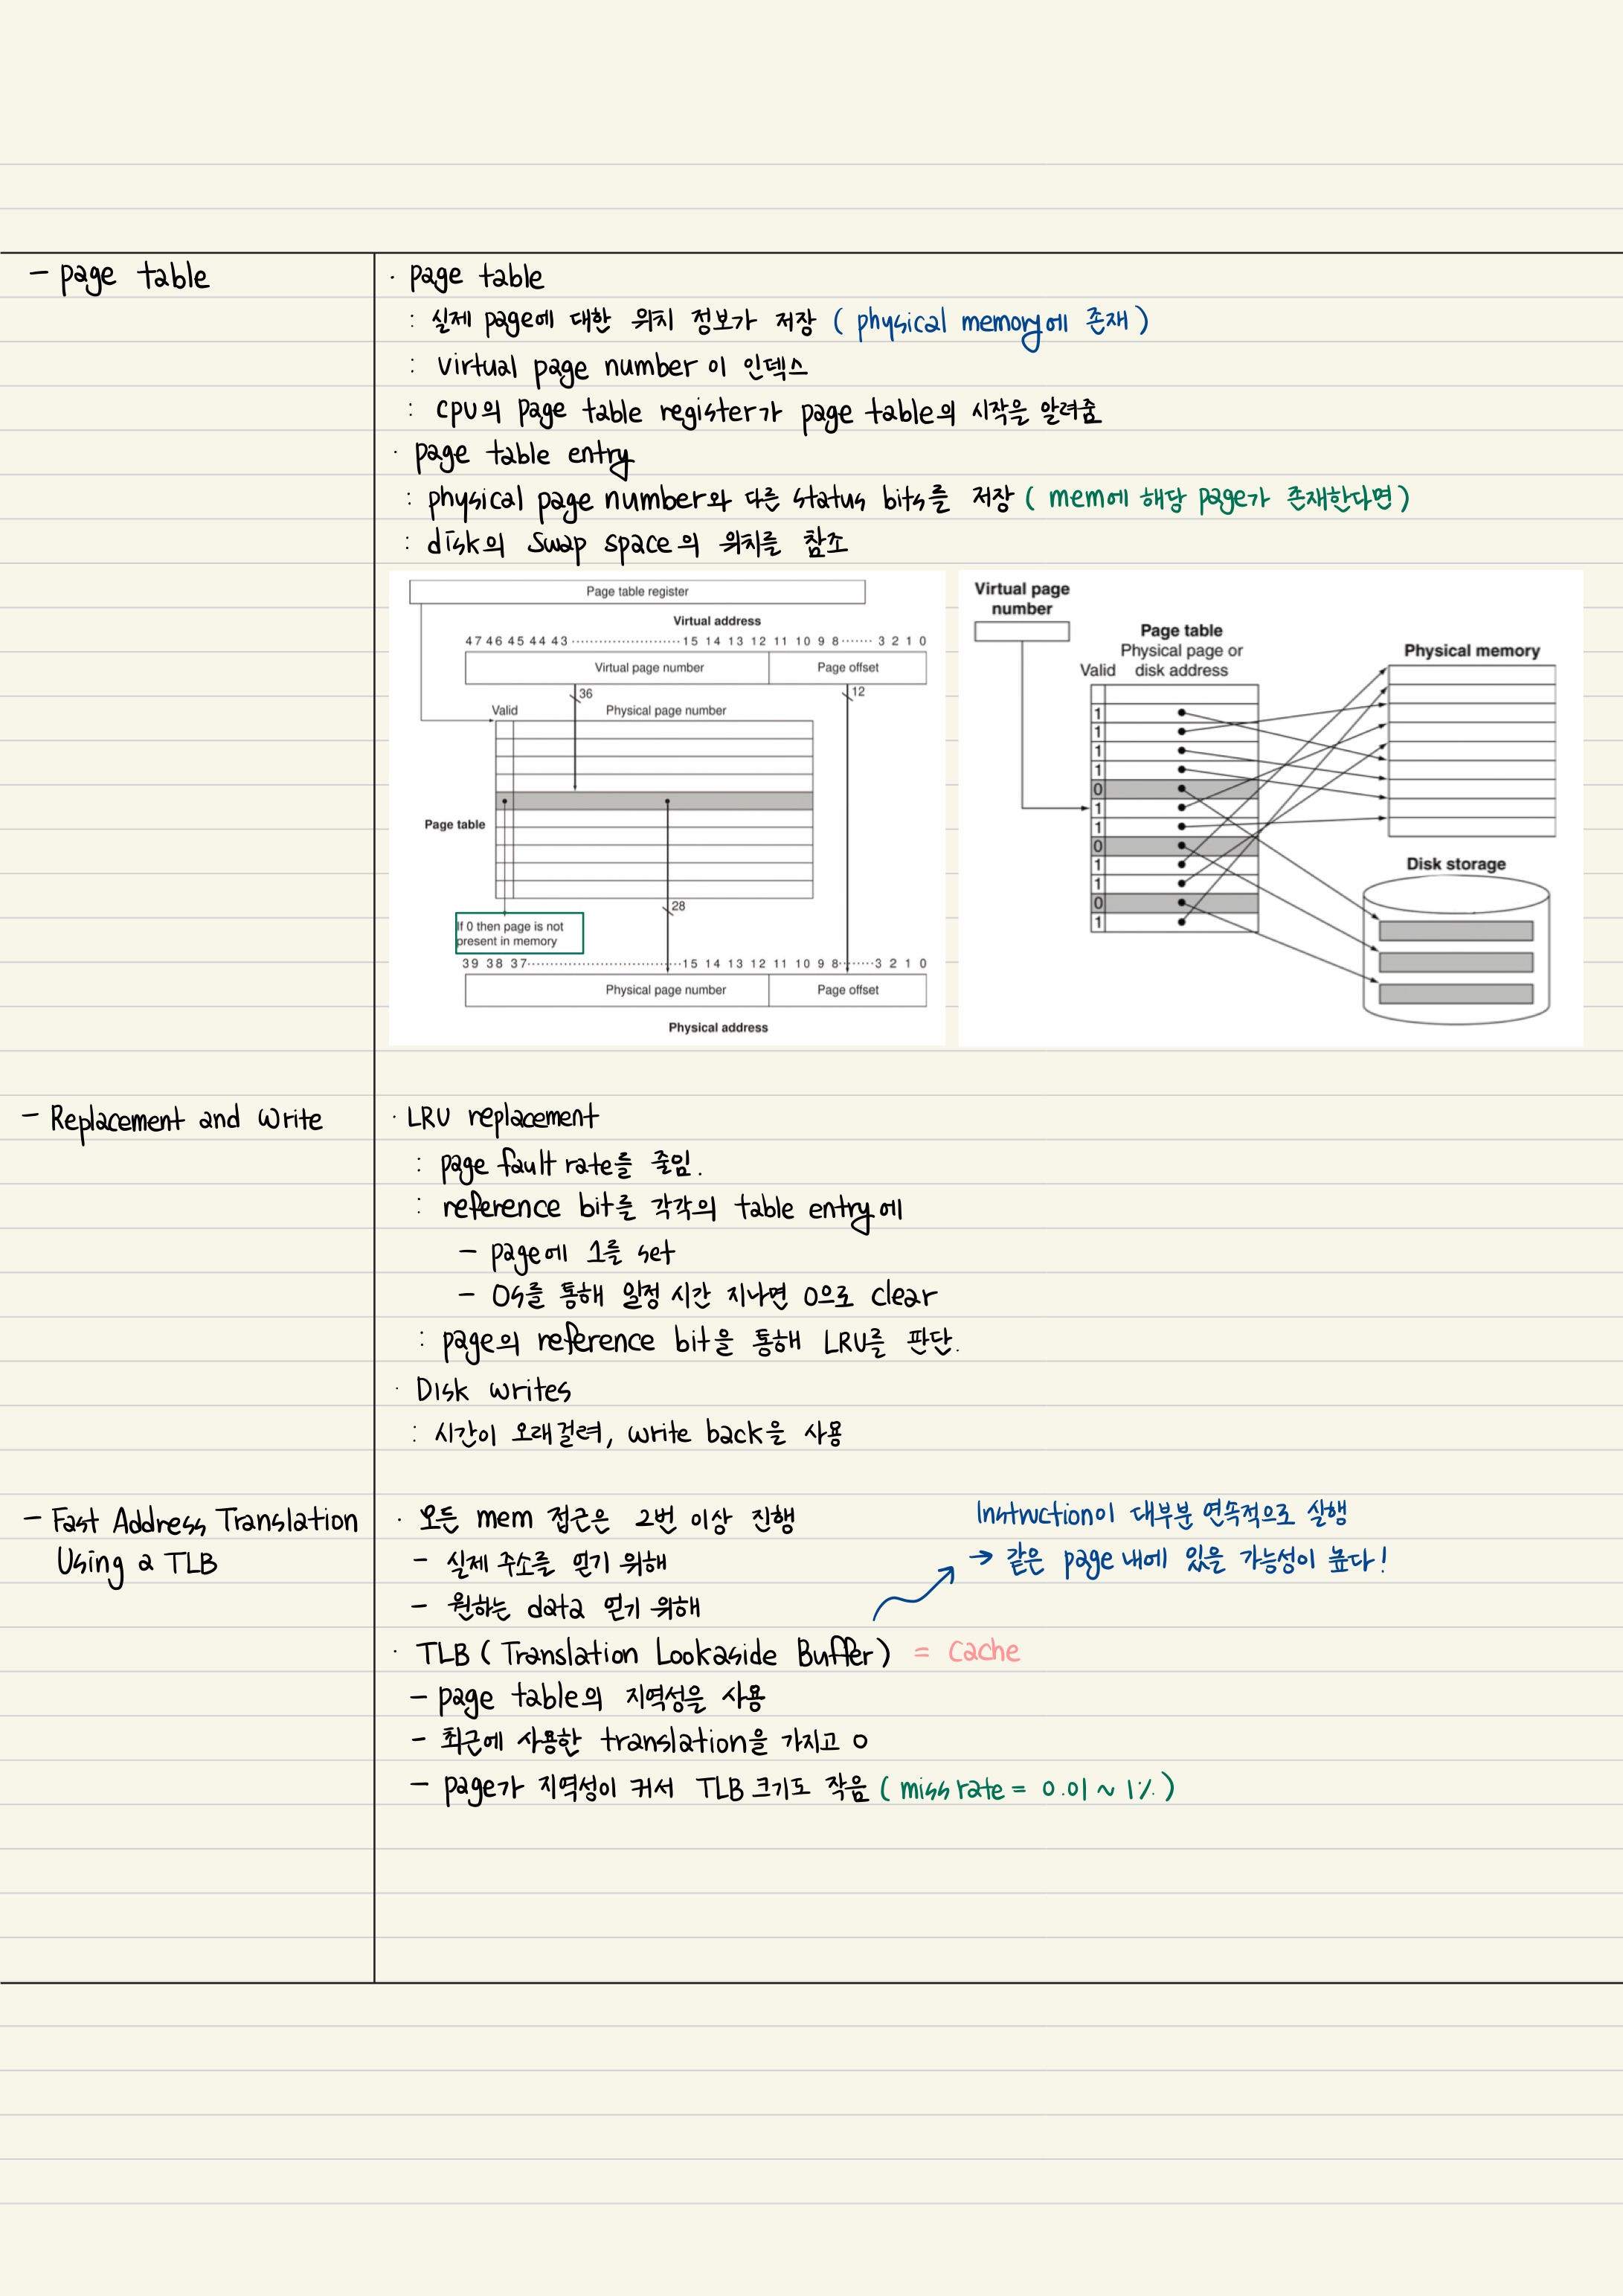 - page table
· page table
: 실제 page에 대한 위치 정보가 저장 ( physical memory에 존재 )
: virtual page number 이 인덱스
: CPU의 page table register가 page table의 시작을 알려줌
· page table entry
: physical page number와 다른 status bits를 저장 ( mem에 해당 page가 존재한다면 )
: disk의 swap space의 위치를 참조
Page table register
Virtual address
47 46 45 44 43 ··················· 15 14 13 12 11 10 9 8 ······· 3 2 1 0
Virtual page number Page offset
36 12
Valid Physical page number
Page table
28
If 0 then page is not
present in memory
39 38 37 ··························· 15 14 13 12 11 10 9 8 ······· 3 2 1 0
Physical page number Page offset
Physical address
Virtual page
number
Page table
Physical page or
Valid disk address
Physical memory
1
1
1
1
0
1
1
0
1
1
0
1
Disk storage
- Replacement and Write
· LRU replacement
: page fault rate를 줄임.
: reference bit를 각각의 table entry에
- page에 1를 set
- OS를 통해 일정 시간 지나면 0으로 clear
: page의 reference bit을 통해 LRU를 판단.
· Disk writes
: 시간이 오래걸려, write back을 사용
- Fast Address Translation
Using a TLB
· 모든 mem 접근은 2번 이상 진행
- 실제 주소를 얻기 위해
- 원하는 data 얻기 위해
Instruction이 대부분 연속적으로 실행
→ 같은 page 내에 있을 가능성이 높다!
· TLB ( Translation Lookaside Buffer ) = Cache
- page table의 지역성을 사용
- 최근에 사용한 translation을 가지고 o
- page가 지역성이 커서 TLB 크기도 작음 ( miss rate = 0.01 ~ 1% )